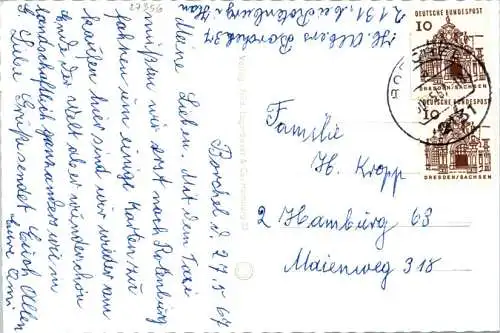 27956
Borchel d. 27.5.67
Meine Lieben. Mit dem Taxi
müssen wir erst nach Rotenburg
fahren um einige Karten zu
kaufen hier sind wir wieder am
Ende der Welt aber wunderschön
landschaftlich ganz anders wie in
Liebe Grüße sendet Euch Allen
Eure Omi
Borchel 37
2131 b. Rotenburg
Familie
H. Kropp
2 Hamburg 63
Maienweg 318
10 DEUTSCHE BUNDESPOST
DRESDEN/SACHSEN
DEUTSCHE BUNDESPOST
10
DRESDEN/SACHSEN
2131